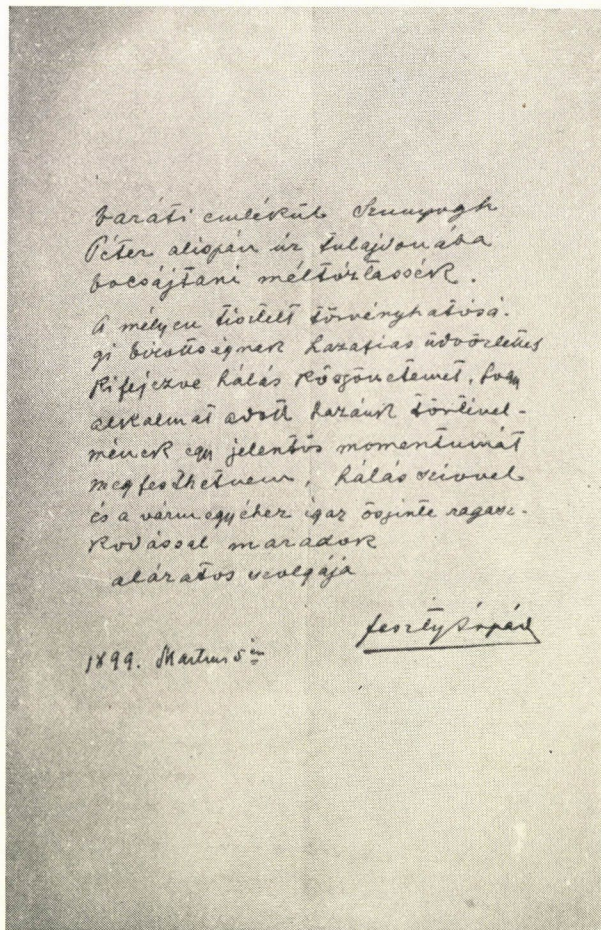 baráti emlékül Szunyogh
Péter alispán úr tulajdonába
bocsájtani méltóztassék.
A mélyen tisztelt törvényhatósá-
gi bizottságnak hazafias üdvözlettel
kifejezve hálás köszönetemet, hogy
alkalmat adott hazánk történel-
mének egy jelentős momentumát
megfesthetnem, hálás szivvel
és a vármegyéhez igaz őszinte ragasz-
kodással maradok
alázatos szolgája
Feszty Árpád
1899. Martius 5 én